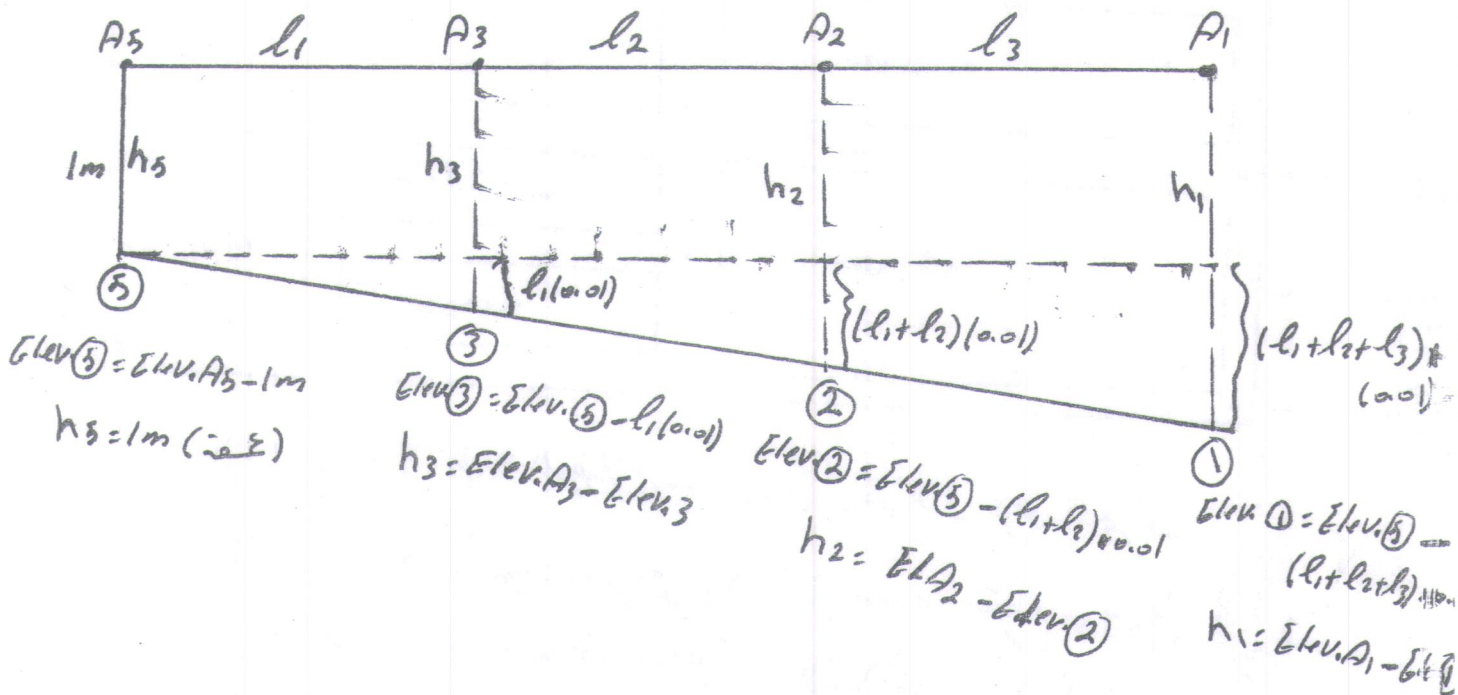 A5 l1 A3 l2 A2 l3 A1
1m h5 h3 h2 h1
l1(0.01)
(l1+l2)(0.01)
(l1+l2+l3)*
(0.01)
⑤
③
②
①
Elev⑤=Elev.A5-1m
h5=1m
Elev③=Elev.⑤-l1(0.01)
h3=Elev.A3-Elev.3
Elev.②=Elev⑤-(l1+l2)*0.01
h2= ELA2-Elev.②
Elev.①=Elev.⑤-
(l1+l2+l3)
h1=Elev.A1-